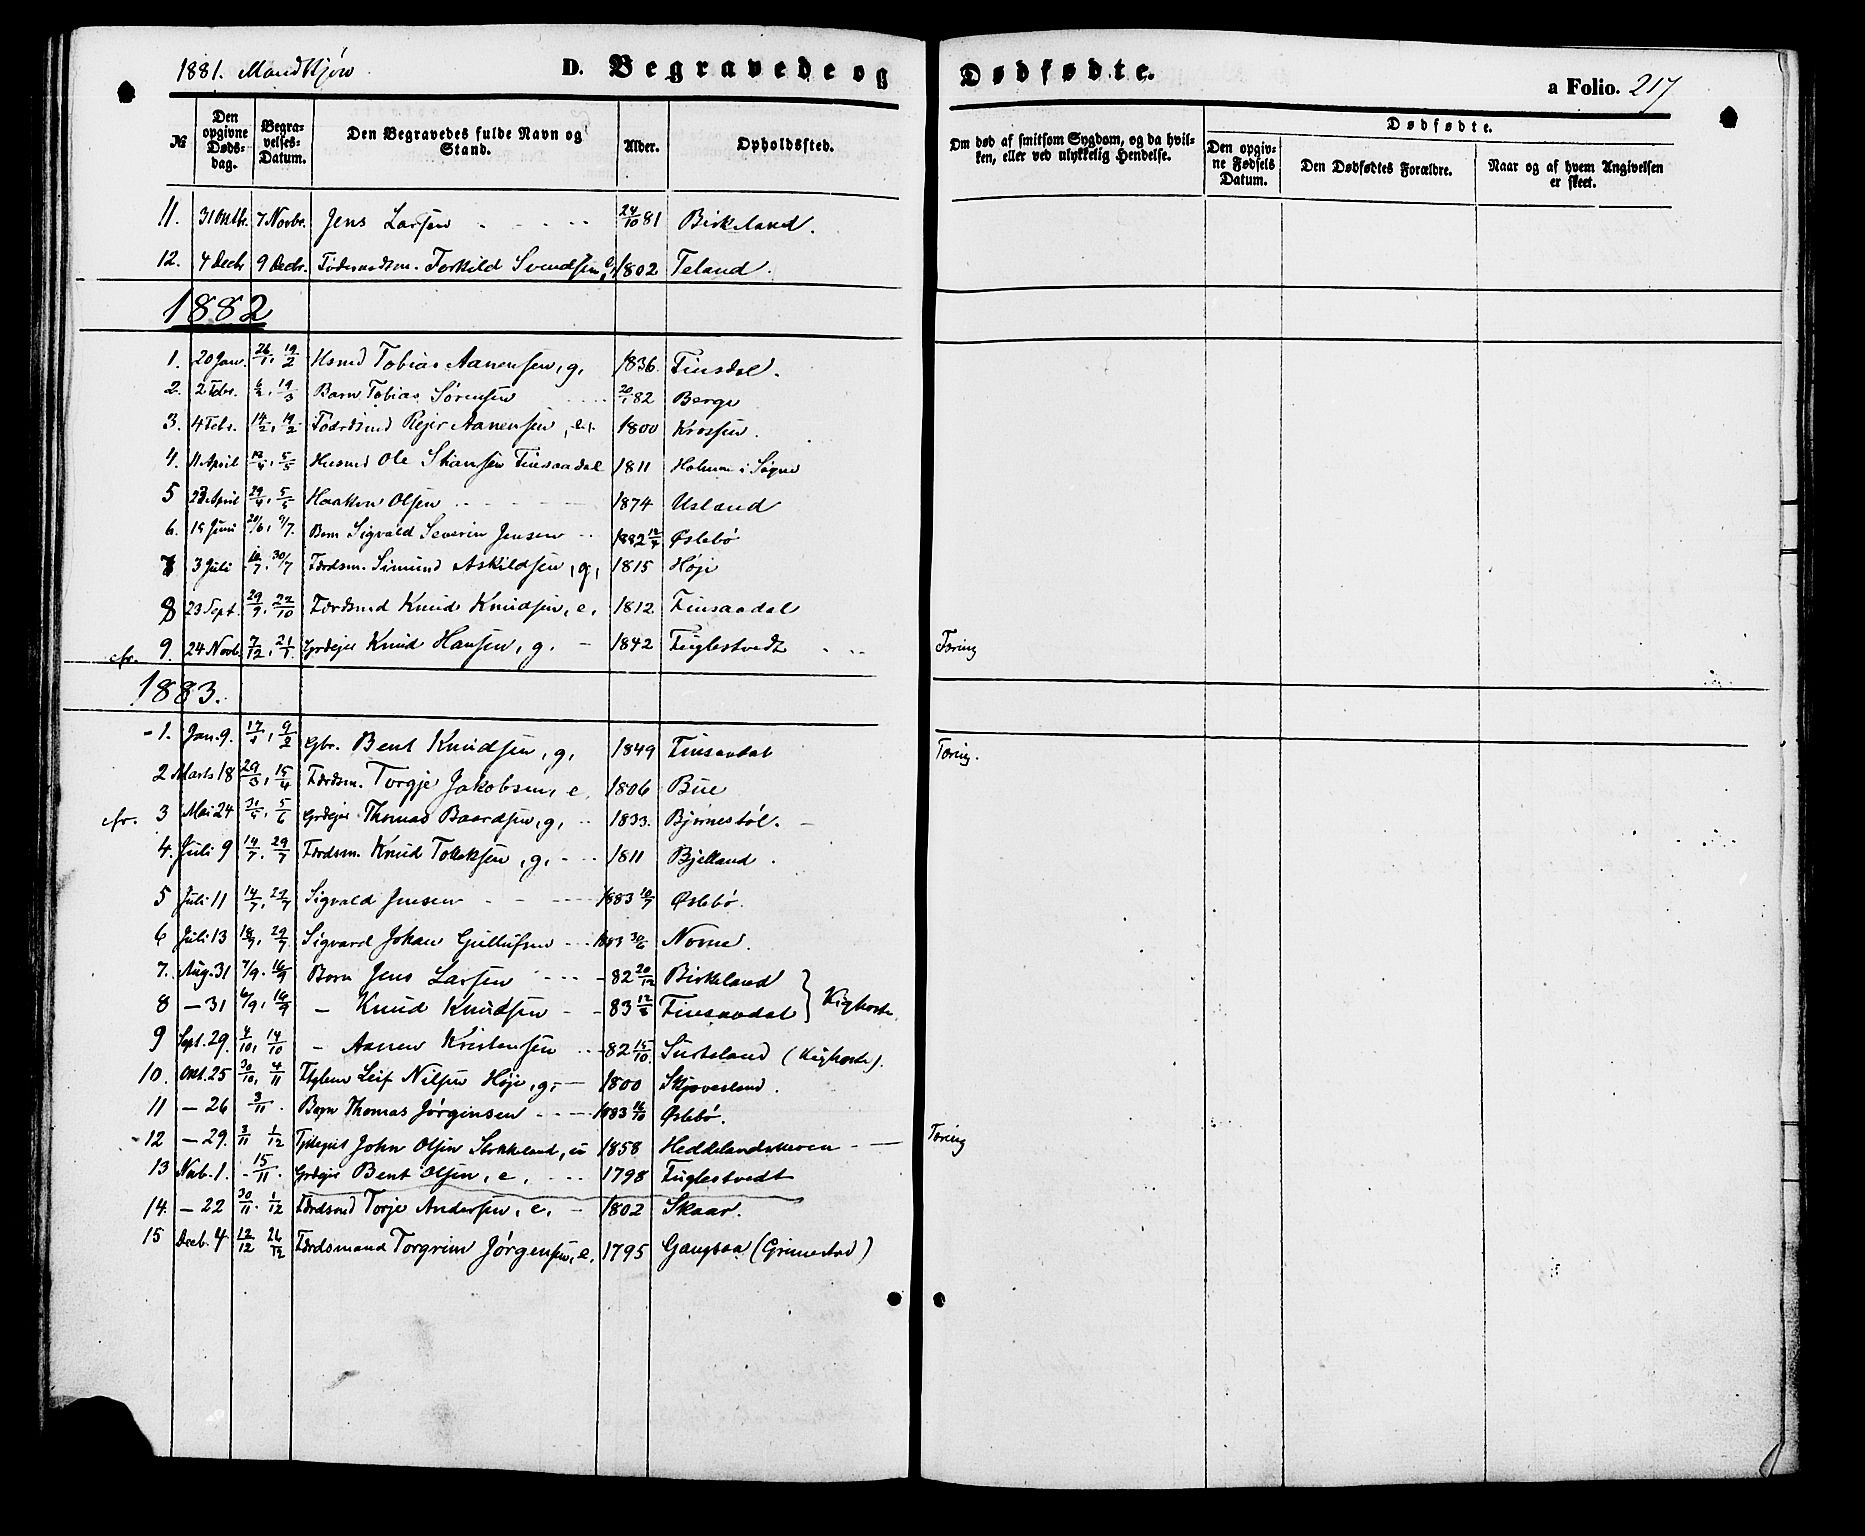 1881. Mandkjøn
D. Begravede og Dødfødte.
a Folio. 217
№ Den opgivne Døds-dag. Begra-velses-Datum. Den Begravedes fulde Navn og Stand. Alder. Opholdssted. Om død af smitsom Sygdom, og da hvil-ken, eller ved ulykkelig Hendelse. Dødfødte. Den opgiv-ne Fødsels Datum. Den Dødfødtes Forældre. Naar og af hvem Angivelsen er skeet.
11. 31 Oktbr. 7 Novbr. Jens Larsen 24/10 81 Birkeland.
12. 4 Decbr 9 Decbr. Torkild Svendsen 1802 Teland.
1882
1. 20 Jan. 26/1, 19/2 Tobias Aanensen, g, 1836. Finsdal.
2. 2 Febr. 6/2, 19/3 Barn Tobias Sørensen 20/1 82 Berge
3. 4 Febr. 14/2, 19/2 Føderaadsmd Rejer Aanensen, e. 1800 Krossen.
4. 11 April 17/4, 5/5 Husmd Ole Finsaadal 1811 Holum i Søgne
5 23 April 29/4, 5/5 Haakon Olsen 1874 Usland
6. 15 Juni 20/6, 9/7. Barn Sigvald Severin Jensen 1882 12/4 Øslebø
7 3 Juli 10/7, 30/7 Færdsm. Simund Askildsen, g, 1815 Høje
8 23 Sept. 29/9, 22/10 Færdsmd Knud Knudsen, e. 1812. Finsaadal
cfr. 9. 24 Novb. 7/12, 21/1. Grdejer Knud Hansen, g. 1842 Fuglestvedt Tæring
1883.
1. Jan. 9. 17/1, 9/2 Gbr. Bent Knudsen, g, 1849 Finsaadal Tæring.
2 Marts 18 29/3, 15/4 Færdsm. Torgje Jakobsen, e. 1806 Bue
cfr. 3 Mai 24 31/5, 5/6 Grdejer Thomas Baardsen, g, 1833. Bjørnestøl.
4. Juli 9 14/7, 29/7 Færdsm. Knud Tolleksen, g, 1811 Bjelland.
5 Juli 11 14/7, 29/7 Sigvald Jensen 1883 10/7 Øslebø.
6 Juli 13 18/7, 29/7 Sigvard Johan Gullufsen 1883 30/6 Nome.
7. Aug. 31 7/9. 16/9 Barn Jens Larsen 82 20/12 Birkeland
8 — 31 6/9, 16/9 — Knud Knudsen 83 12/6 Finsaadal } Kighoste.
9 Sept. 29. 4/10, 14/10 — Aanen Kristensen 82 15/10. (Kighoste).
10. Okt. 25 30/10, 4/11 Leif Nilsen Høje, g, 1800 Skjævesland.
11 — 26 3/11. Barn Thomas Jørginsen 1883 16/10 Øslebø.
12 — 29. 3/11 1/12 John Olsen Stokkeland, u 1858 Heddelandsheien Tæring
13 Novb. 1. 15/11. Grdejer Bent Olsen, e. 1798 Fuglestvedt
14. — 22 30/11. 1/12 Færdsmd Torje Andersen, e. 1802 Skaar.
15 Decb. 4 12/12 26/12 Færdsmand Torgrim Jørgensen, e. 1795 Gangsaa (Grimestad)